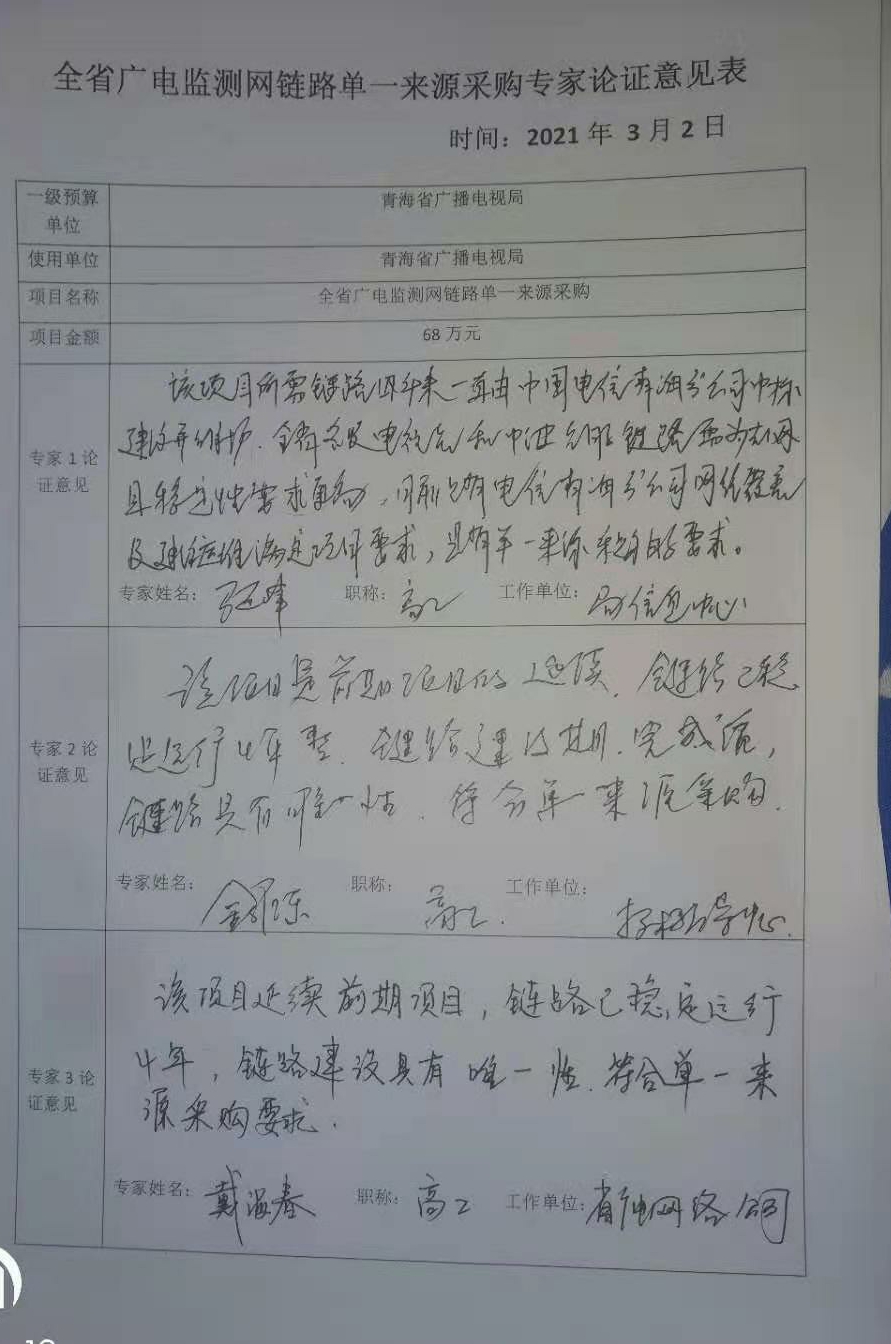 全省广电监测网链路单一来源采购专家论证意见表
时间：2021 年 3 月 2 日
一级预算单位 青海省广播电视局
使用单位 青海省广播电视局
项目名称 全省广电监测网链路单一来源采购
项目金额 68 万元
专家 1 论证意见
该项目所需链路四年来一直由中国电信青海分公司中标
建设并维护.全省各县电视台和中波台站链路需为专网
且稳定性要求更高，目前只有电信青海分公司网络覆盖
及建设运维满足项目要求，具有单一来源采购的要求。
专家姓名： 职称：高工 工作单位：局信息中心
专家 2 论证意见
该项目是前期项目的延续.链路已稳
定运行4年整.链路建设期.完成后，
链路具有唯一性.符合单一来源采购.
专家姓名： 职称：高工. 工作单位：
专家 3 论证意见
该项目延续前期项目，链路已稳定运行
4年，链路建设具有唯一性.符合单一来
源采购要求.
专家姓名：戴温春 职称：高工 工作单位：省广电网络公司